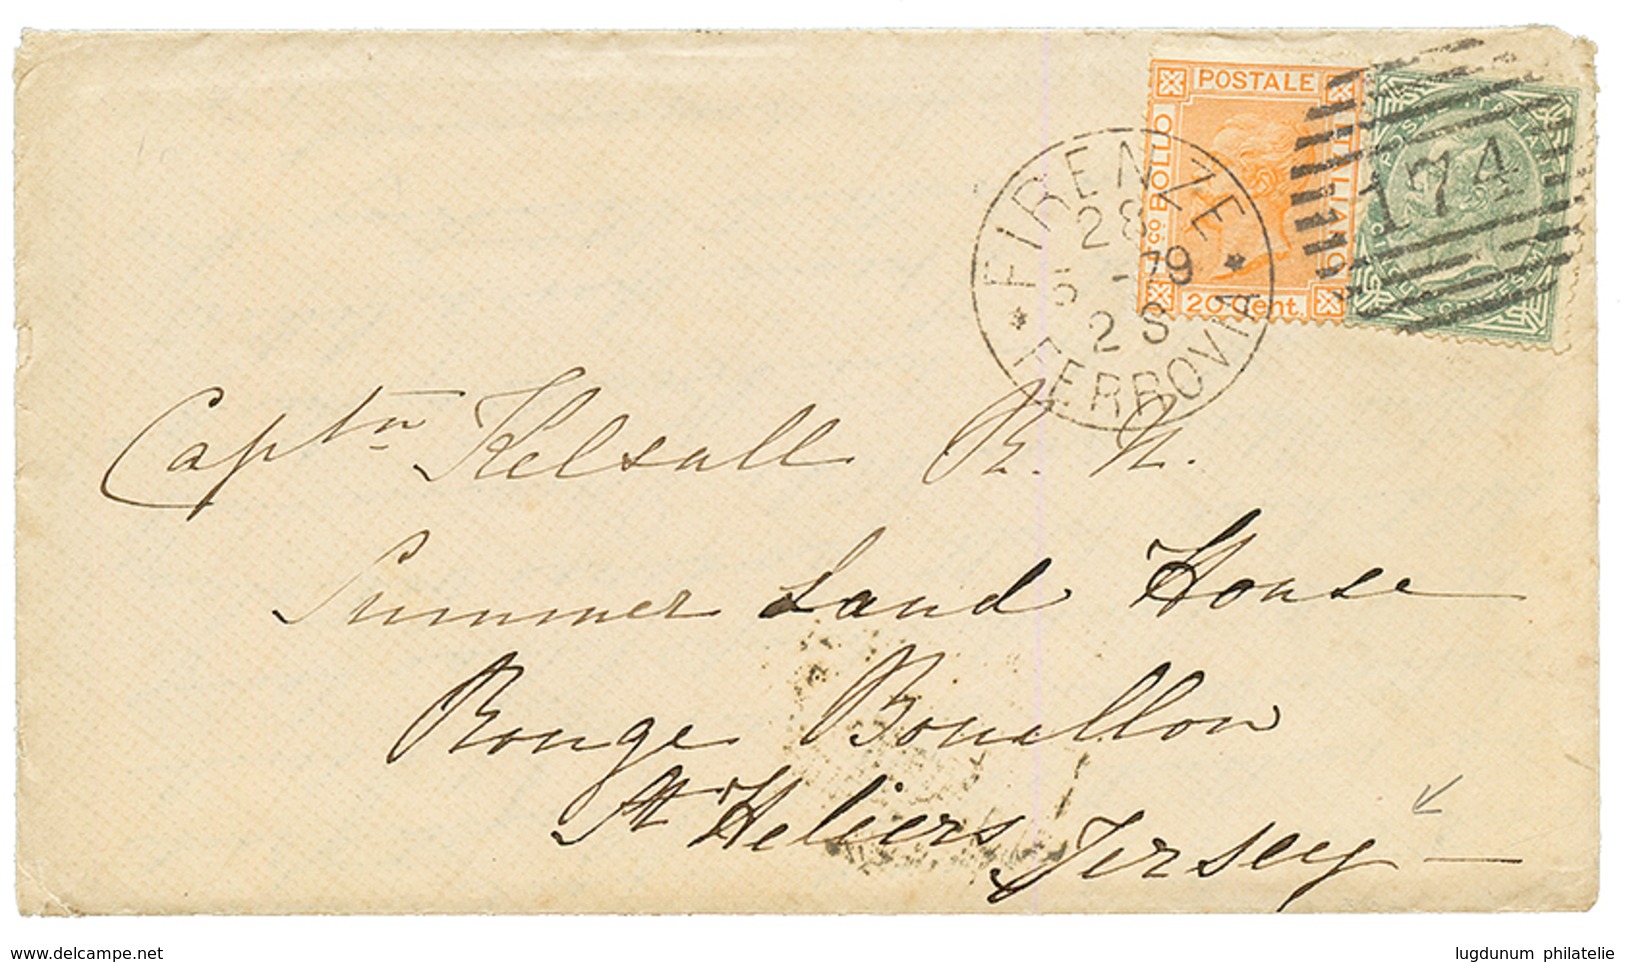 POSTALE
BOLLO
20 Cent.
174
FIRENZE
28
5 -79
2 S
FERROVIA
Captn Kelsall R. N.
Summer Land House
Rouge Bouillon
St Heliers Jersey
www.delcampe.net
lugdunum philatelie